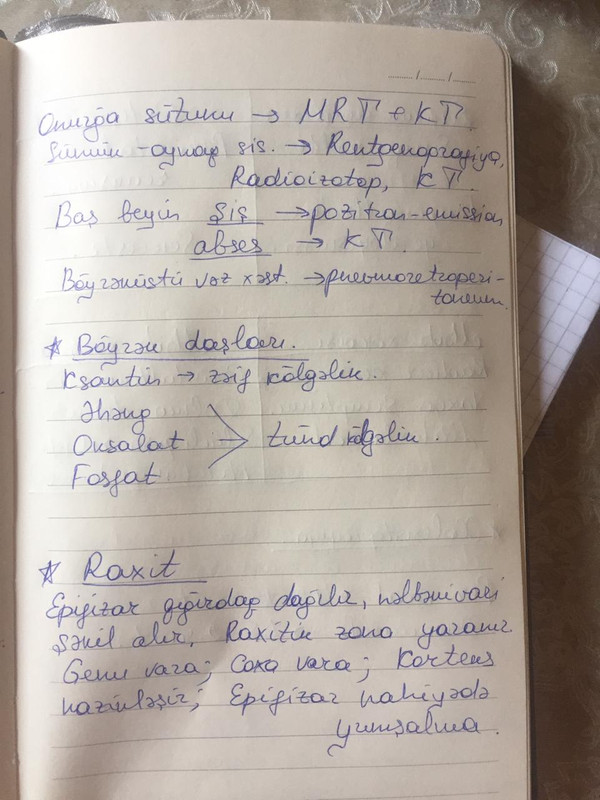 Onurğa sütunu → MRT + KT
Sümük-oynaq sis. → Rentgenoqrafiya,
Radioizotop, KT
Baş beyin şiş → pozitron-emission
abses → KT
Böyrəküstü vəz xəst. → pnevmoretroperi-
toneum.
* Böyrək daşları.
Ksantin → zəif kölgəlik.
Əhəng
Oksalat > tünd kölgəlik.
Fosfat
* Raxit
Epifizar qığırdaq dağılır, nəlbəkivari
şəkil alır, Raxitik zona yaranır
Genu vara; Coxa vara; Korteks
nazikləşir; Epifizar nahiyədə
yumşalma.